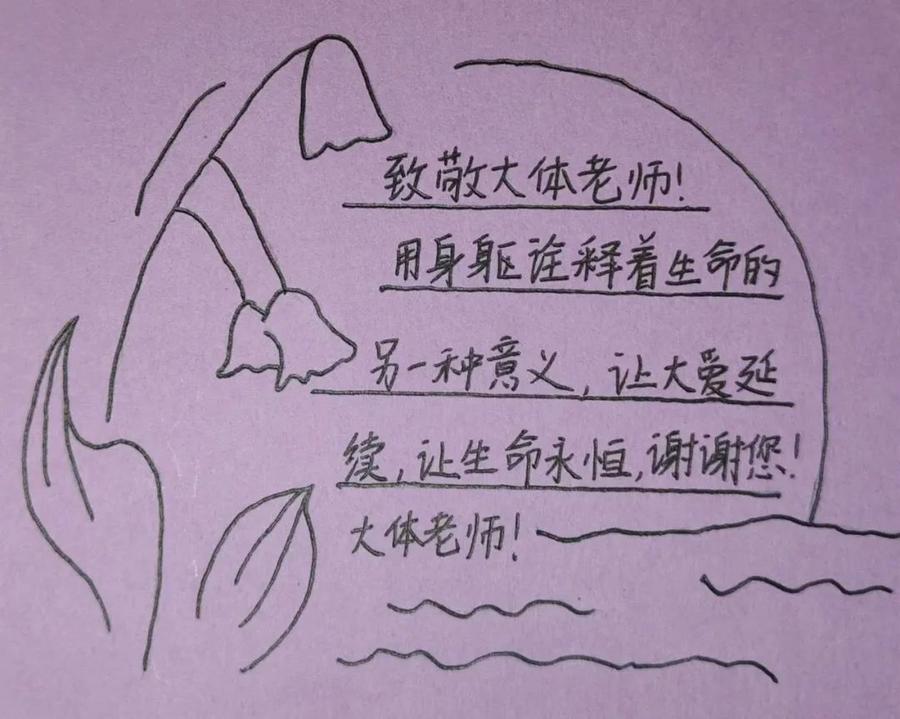 致敬大体老师!
用身躯诠释着生命的
另一种意义,让大爱延
续,让生命永恒,谢谢您!
大体老师!